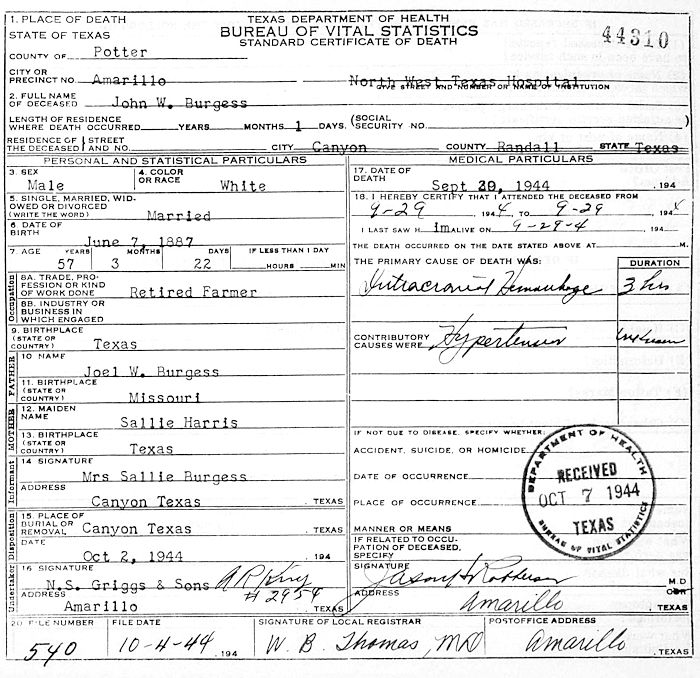 1. PLACE OF DEATH
STATE OF TEXAS
TEXAS DEPARTMENT OF HEALTH
BUREAU OF VITAL STATISTICS
STANDARD CERTIFICATE OF DEATH
44310
COUNTY OF Potter
CITY OR
PRECINCT NO. Amarillo North West Texas Hospital
GIVE STREET AND NUMBER OR NAME OF INSTITUTION
2. FULL NAME
OF DECEASED John W. Burgess
LENGTH OF RESIDENCE
WHERE DEATH OCCURRED YEARS MONTHS 1 DAYS. (SOCIAL
SECURITY NO.
RESIDENCE OF STREET
THE DECEASED AND NO. CITY Canyon COUNTY Randall STATE Texas
PERSONAL AND STATISTICAL PARTICULARS
3. SEX
Male
4. COLOR
OR RACE White
5. SINGLE, MARRIED, WID-
OWED OR DIVORCED
(WRITE THE WORD) Married
6. DATE OF
BIRTH June 7, 1887
7. AGE YEARS MONTHS DAYS IF LESS THAN 1 DAY
57 3 22 HOURS MIN
Occupation
8A. TRADE, PRO-
FESSION OR KIND
OF WORK DONE Retired Farmer
8B. INDUSTRY OR
BUSINESS IN
WHICH ENGAGED
9. BIRTHPLACE
(STATE OR
COUNTRY) Texas
FATHER
10 NAME
Joel W. Burgess
11. BIRTHPLACE
(STATE OR
COUNTRY) Missouri
MOTHER
12. MAIDEN
NAME Sallie Harris
13. BIRTHPLACE
(STATE OR
COUNTRY) Texas
Informant
14 SIGNATURE
Mrs Sallie Burgess
ADDRESS
Canyon Texas , TEXAS
Disposition
15. PLACE OF
BURIAL OR
REMOVAL Canyon Texas , TEXAS
DATE
Oct 2, 1944 . 194
Undertaker
16 SIGNATURE
N.S. Griggs & Sons A R King
# 2954
ADDRESS
Amarillo , TEXAS
MEDICAL PARTICULARS
17. DATE OF
DEATH Sept 29, 1944 . 194
18. I HEREBY CERTIFY THAT I ATTENDED THE DECEASED FROM
9-29 1944 TO 9-29 1944
I LAST SAW H im ALIVE ON 9-29-4 , 194
THE DEATH OCCURRED ON THE DATE STATED ABOVE AT M.
THE PRIMARY CAUSE OF DEATH WAS:
DURATION
Intracranial Hemorrhage 3 hrs
CONTRIBUTORY
CAUSES WERE Hypertension
IF NOT DUE TO DISEASE, SPECIFY WHETHER:
ACCIDENT, SUICIDE, OR HOMICIDE
DATE OF OCCURRENCE
PLACE OF OCCURRENCE
MANNER OR MEANS
IF RELATED TO OCCU-
PATION OF DECEASED,
SPECIFY
DEPARTMENT OF HEALTH
RECEIVED
OCT 7 1944
TEXAS
BUREAU OF VITAL STATISTICS
SIGNATURE
M.D
ADDRESS Amarillo , TEXAS
20 FILE NUMBER
540
FILE DATE
10-4-44 , 194
SIGNATURE OF LOCAL REGISTRAR
W. B. Thomas, MD
POSTOFFICE ADDRESS
Amarillo , TEXAS